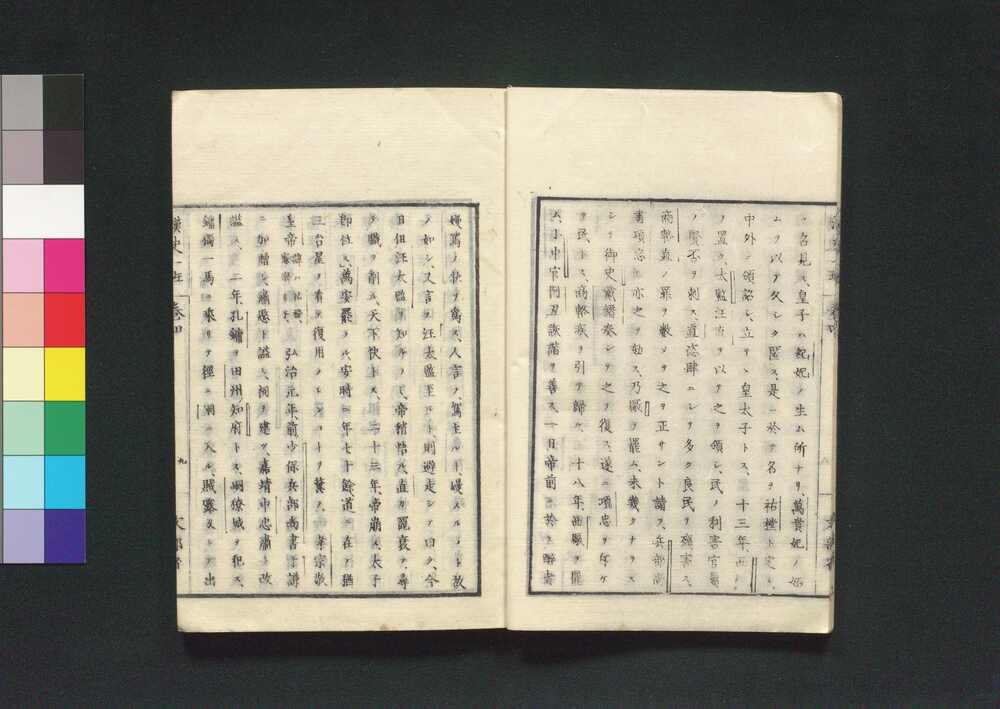 ヲ召見ス、皇子ハ紀妃ノ生ム所ナリ、萬貴妃ノ妬
ムヲ以テ久シク匿ス、是ニ於テ名ヲ祐樘ト定メ、
中外ニ頒詔シ、立テヽ皇太子トス、十三年、西廠
ヲ置キ、太監汪直ヲ以テ之ヲ領シ、民ノ利害、官屬
ノ賢否ヲ刺ス、直恣肆ニシテ多ク良民ヲ殘害ス、
商輅直ノ罪ヲ數メテ之ヲ正サント請フ、兵部尚
書項忠モ亦之ヲ劾ス、乃廠ヲ罷ム、未幾クナラス
シテ御史戴縉奏シテ之ヲ復ス、遂ニ項忠ヲ斥ケ
テ民トス、商輅疾ヲ引テ歸ル、十八年、西廠ヲ罷
ム、小中官阿丑詼諧ヲ善ス、一日帝前ニ於テ醉者
漢史一班 卷四
九
文部省
嫚罵ノ狀ヲ爲ス、人言フ、駕至ルト、嫚スルヿ故
ノ如シ、又言フ、汪太監至ルト、則避走シテ曰ク、今
日但汪太監ヲ知ルノミ、帝稍悟ル、直カ寵衰フ、尋
テ職ヲ削ル、天下快トス、二十三年、帝崩ス、太子
卽位ス、萬安罷ラル、安時ニ年七十餘、道ニ在テ猶
三台星ヲ看テ復用ラレンコトヲ冀フ、孝宗敬
皇帝 諱ハ祐樘、憲宗ノ子 弘治元年、前少保兵部尚書于謙
ニ加贈シ肅愍ト謚ス、祠ヲ建ツ、嘉靖中忠肅ト改
謚ス、二年、孔鏞ヲ田州知府トス、峒獠城ヲ犯ス、
鏞獨一馬ニ乘リテ徑ニ峒ニ入ル、賊露刄シテ出